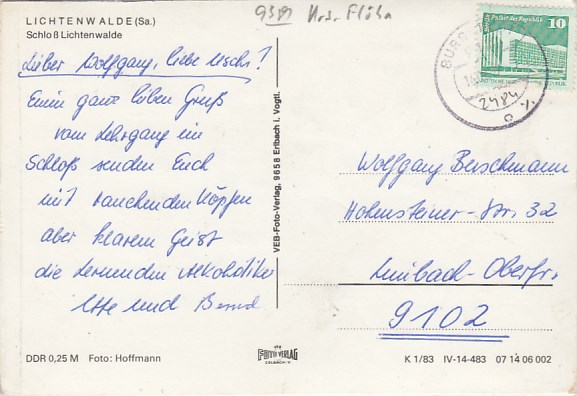 LICHTENWALDE (Sa.)
Schloß Lichtenwalde
Lieber Wolfgang, liebe Uschi!
Einen ganz lieben Gruß
vom Lehrgang im
Schloß senden Euch
mit rauchenden Köpfen
aber klarem Geist
die lernenden Alkoholiker
und Bernd
VEB-Foto-Verlag, 9658 Erlbach i. Vogtl.
10
Wolfgang Berschmann
Hohensteiner-Str. 32
Limbach-Oberfr.
9102
DDR 0,25 M Foto: Hoffmann
FOTO VERLAG
K 1/83 IV-14-483 07 14 06 002